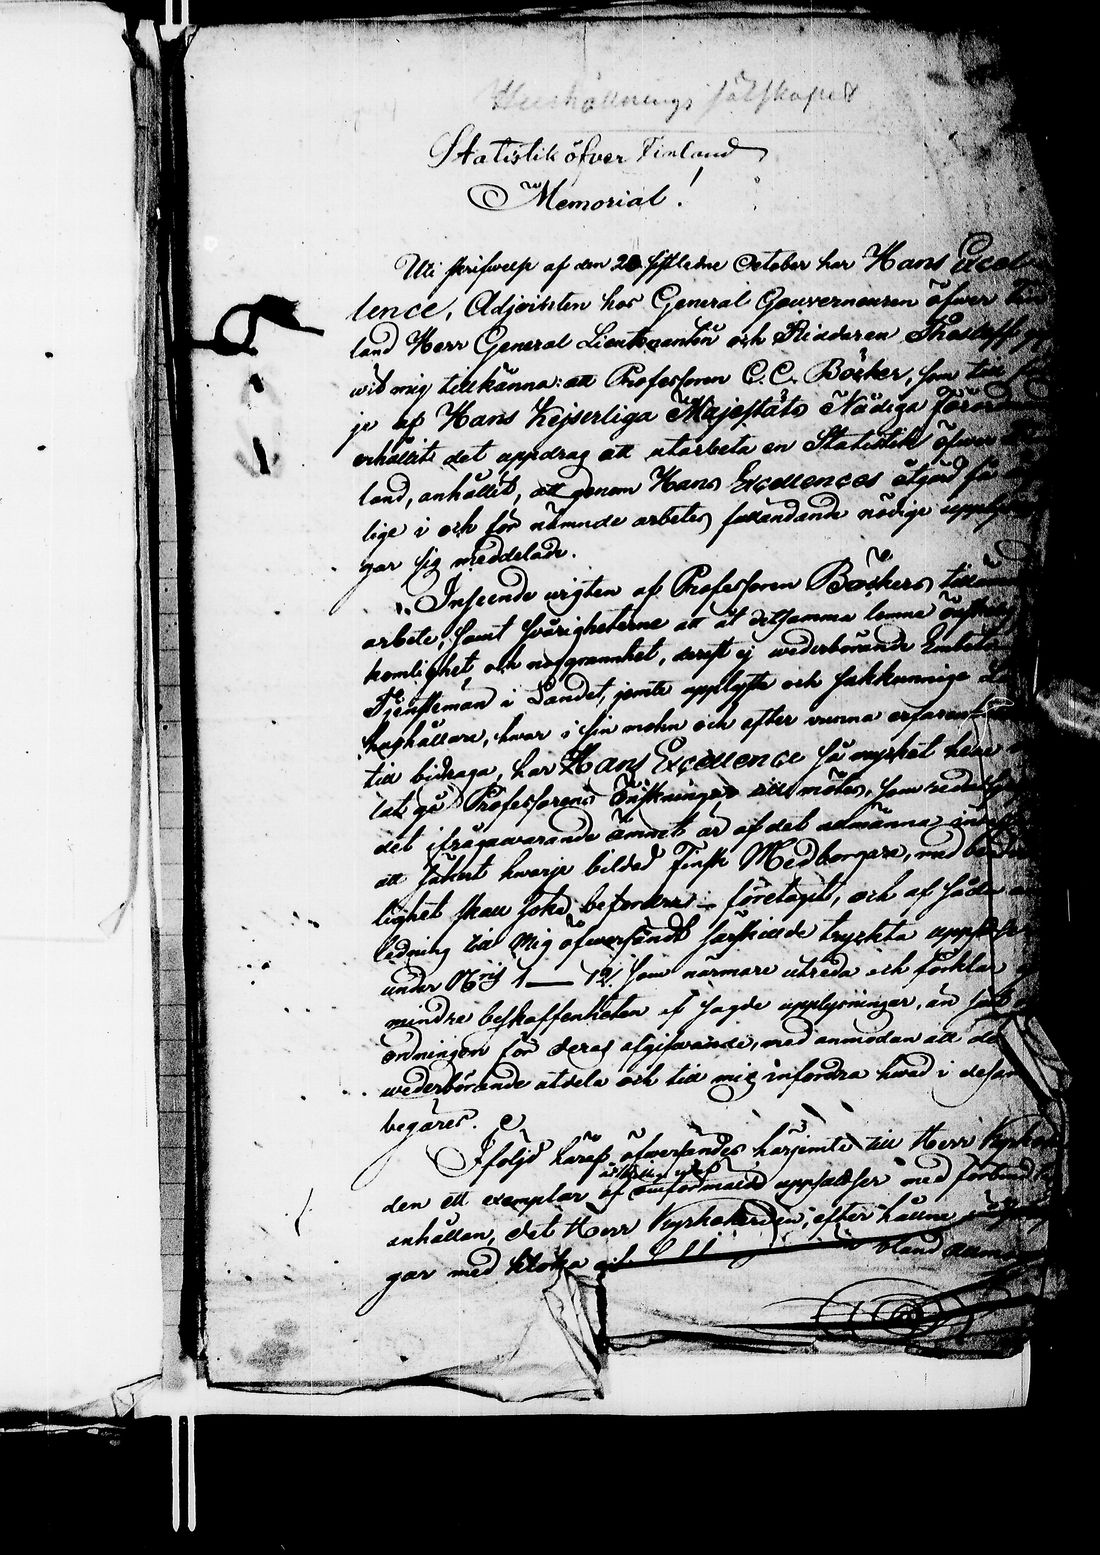 Hushållnings sälskapet
Statistik öfver Finland
Memorial!
Uti skrifwelse af den 28 sistledne October har Hans Excel
lence, Adjointen hos General Gouverneuren öfwer Fin
land Herr General Lieutnanten och Riddaren Thesleff gif
wit mig tillkänna: att Professoren C. C. Böcker, som till föl
je af Hans Kejserliga Majestäts Nådiga Förordnande
erhållit det uppdrag att utarbeta en Statistik öfwer Fin
land, anhållit, att genom Hans Excellences åtgärd få
lige i och för nämnde arbete fallandande nödige upplysnin
gar sig meddelade.
Inseende wigten af Professoren Böckers tillämnade
arbete, samt swårigheterne att åt detsamma lemna
komlighet och noggrannhet, derest ej wederbörande Embets
Tjenstemän i Landet, jemte upplyste och sakkunnige
hushållare, hwar i sin mohn och efter wunna erfarenhet
till bidraga, har Hans Excellence så mycket hellre
lat gå Professorens önskningar till mötes, som
det ifrågawarande ämnet är af det allmänna
att säkert hwarje bildad Finsk Medborgare, med
lighet skall söka befordra företaget, och af sådan an
ledning till Mig öfwersändt särskillde tryckta uppsatser
under N:ris 1 — 12. som närmare utreda och förklara
mindre beskaffenheten af sagde upplysningar, än
ordningen för deras afgifwande, med anmodan att
wederbörande utdela och till mig infordra hwad i
begäres.
I följd häraf öfwersändes härjemte till Herr Kyrkoher
den ett exemplar af omförmälde uppsatser med
anhållan, det Herr Kyrkoherden, efter
gar med kloka bland